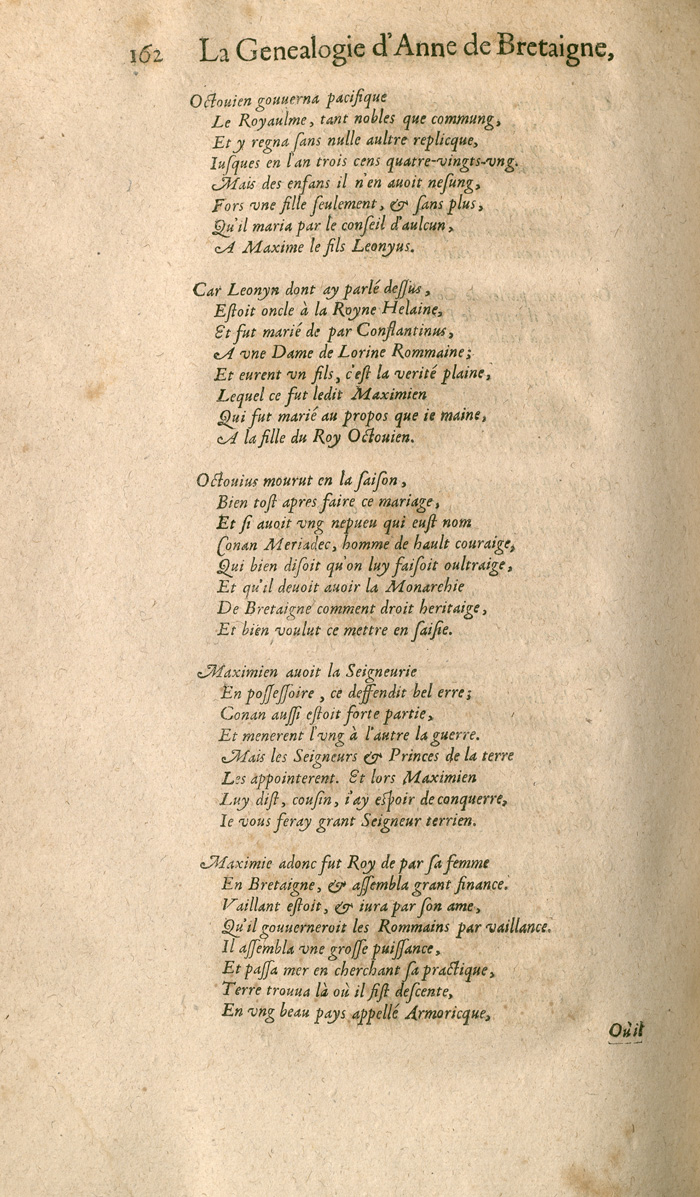 162 La Genealogie d'Anne de Bretaigne,
Octouien gouuerna pacifique
Le Royaulme, tant nobles que commung,
Et y regna ſans nulle aultre replicque,
Iuſques en l'an trois cens quatre-vingts-vng.
Mais des enfans il n'en auoit neſung,
Fors vne fille ſeulement, & ſans plus,
Qu'il maria par le conſeil d'aulcun,
A Maxime le fils Leonyus.
Car Leonyn dont ay parlé deſſus,
Eſtoit oncle à la Royne Helaine,
Et fut marié de par Conſtantinus,
A vne Dame de Lorine Rommaine;
Et eurent vn fils, c'eſt la verité plaine,
Lequel ce fut ledit Maximien
Qui fut marié au propos que ie maine,
A la fille du Roy Octouien.
Octouius mourut en la ſaiſon,
Bien toſt apres faire ce mariage,
Et ſi auoit vng nepueu qui euſt nom
Conan Meriadec, homme de hault couraige,
Qui bien diſoit qu'on luy faiſoit oultraige,
Et qu'il deuoit auoir la Monarchie
De Bretaigne comment droit heritaige,
Et bien voulut ce mettre en ſaiſie.
Maximien auoit la Seigneurie
En poſſeſſoire, ce deffendit bel erre;
Conan auſſi eſtoit forte partie,
Et menerent l'vng à l'autre la guerre.
Mais les Seigneurs & Princes de la terre
Les appointerent. Et lors Maximien
Luy diſt, couſin, i'ay eſpoir de conquerre,
Ie vous feray grant Seigneur terrien.
Maximie adonc fut Roy de par ſa femme
En Bretaigne, & aſſembla grant finance.
Vaillant eſtoit, & iura par ſon ame,
Qu'il gouuerneroit les Rommains par vaillance.
Il aſſembla vne groſſe puiſſance,
Et paſſa mer en cherchant ſa practique,
Terre trouua là où il fiſt deſcente,
En vng beau pays appellé Armoricque,
Où il